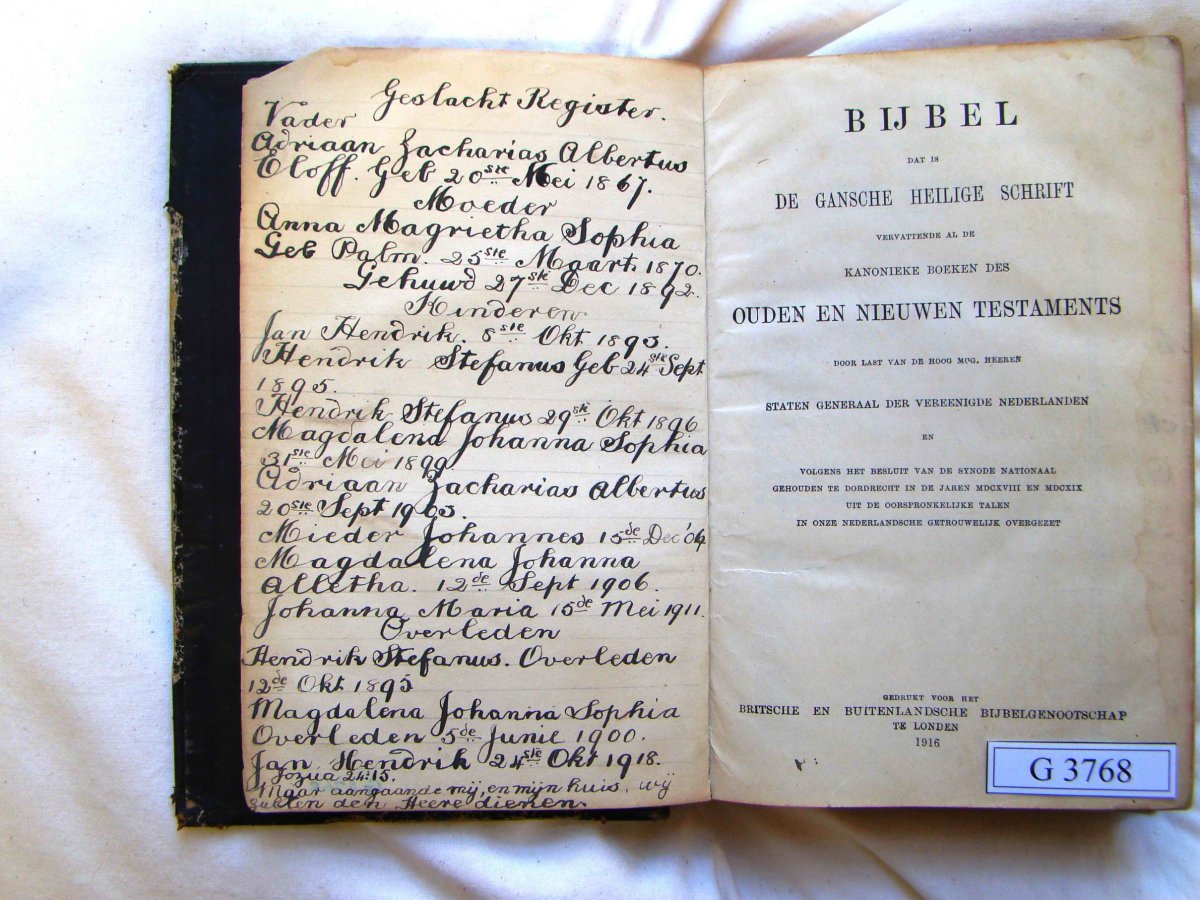 Geslacht Register.
Vader
Adriaan Zacharias Albertus
Eloff. Geb 20ste Mei 1867.
Moeder
Anna Magrietha Sophia
Geb Palm. 25ste Maart 1870.
Gehuwd 27ste Dec 1892.
Kinderen
Jan Hendrik. 8ste Okt 1893.
Hendrik Stefanus Geb 24ste Sept
1895.
Hendrik Stefanus 29ste Okt 1896
Magdalena Johanna Sophia
31ste Mei 1899
Adriaan Zacharias Albertus
20ste Sept 1903.
Mieder Johannes 15de Dec '04
Magdalena Johanna
Alletha. 12de Sept 1906.
Johanna Maria 15de Mei 1911.
Overleden
Hendrik Stefanus. Overleden
12de Okt 1895
Magdalena Johanna Sophia
Overleden 5de Junie 1900.
Jan Hendrik 24ste Okt 1918.
Jozua 24:15.
Maar aangaande mij, en mijn huis, wij
zullen den Heere dienen.
BIJBEL
DAT IS
DE GANSCHE HEILIGE SCHRIFT
VERVATTENDE AL DE
KANONIEKE BOEKEN DES
OUDEN EN NIEUWEN TESTAMENTS
DOOR LAST VAN DE HOOG MOG. HEEREN
STATEN GENERAAL DER VEREENIGDE NEDERLANDEN
EN
VOLGENS HET BESLUIT VAN DE SYNODE NATIONAAL
GEHOUDEN TE DORDRECHT IN DE JAREN MDCXVIII EN MDCXIX
UIT DE OORSPRONKELIJKE TALEN
IN ONZE NEDERLANDSCHE GETROUWELIJK OVERGEZET
GEDRUKT VOOR HET
BRITSCHE EN BUITENLANDSCHE BIJBELGENOOTSCHAP
TE LONDEN
1916
G 3768